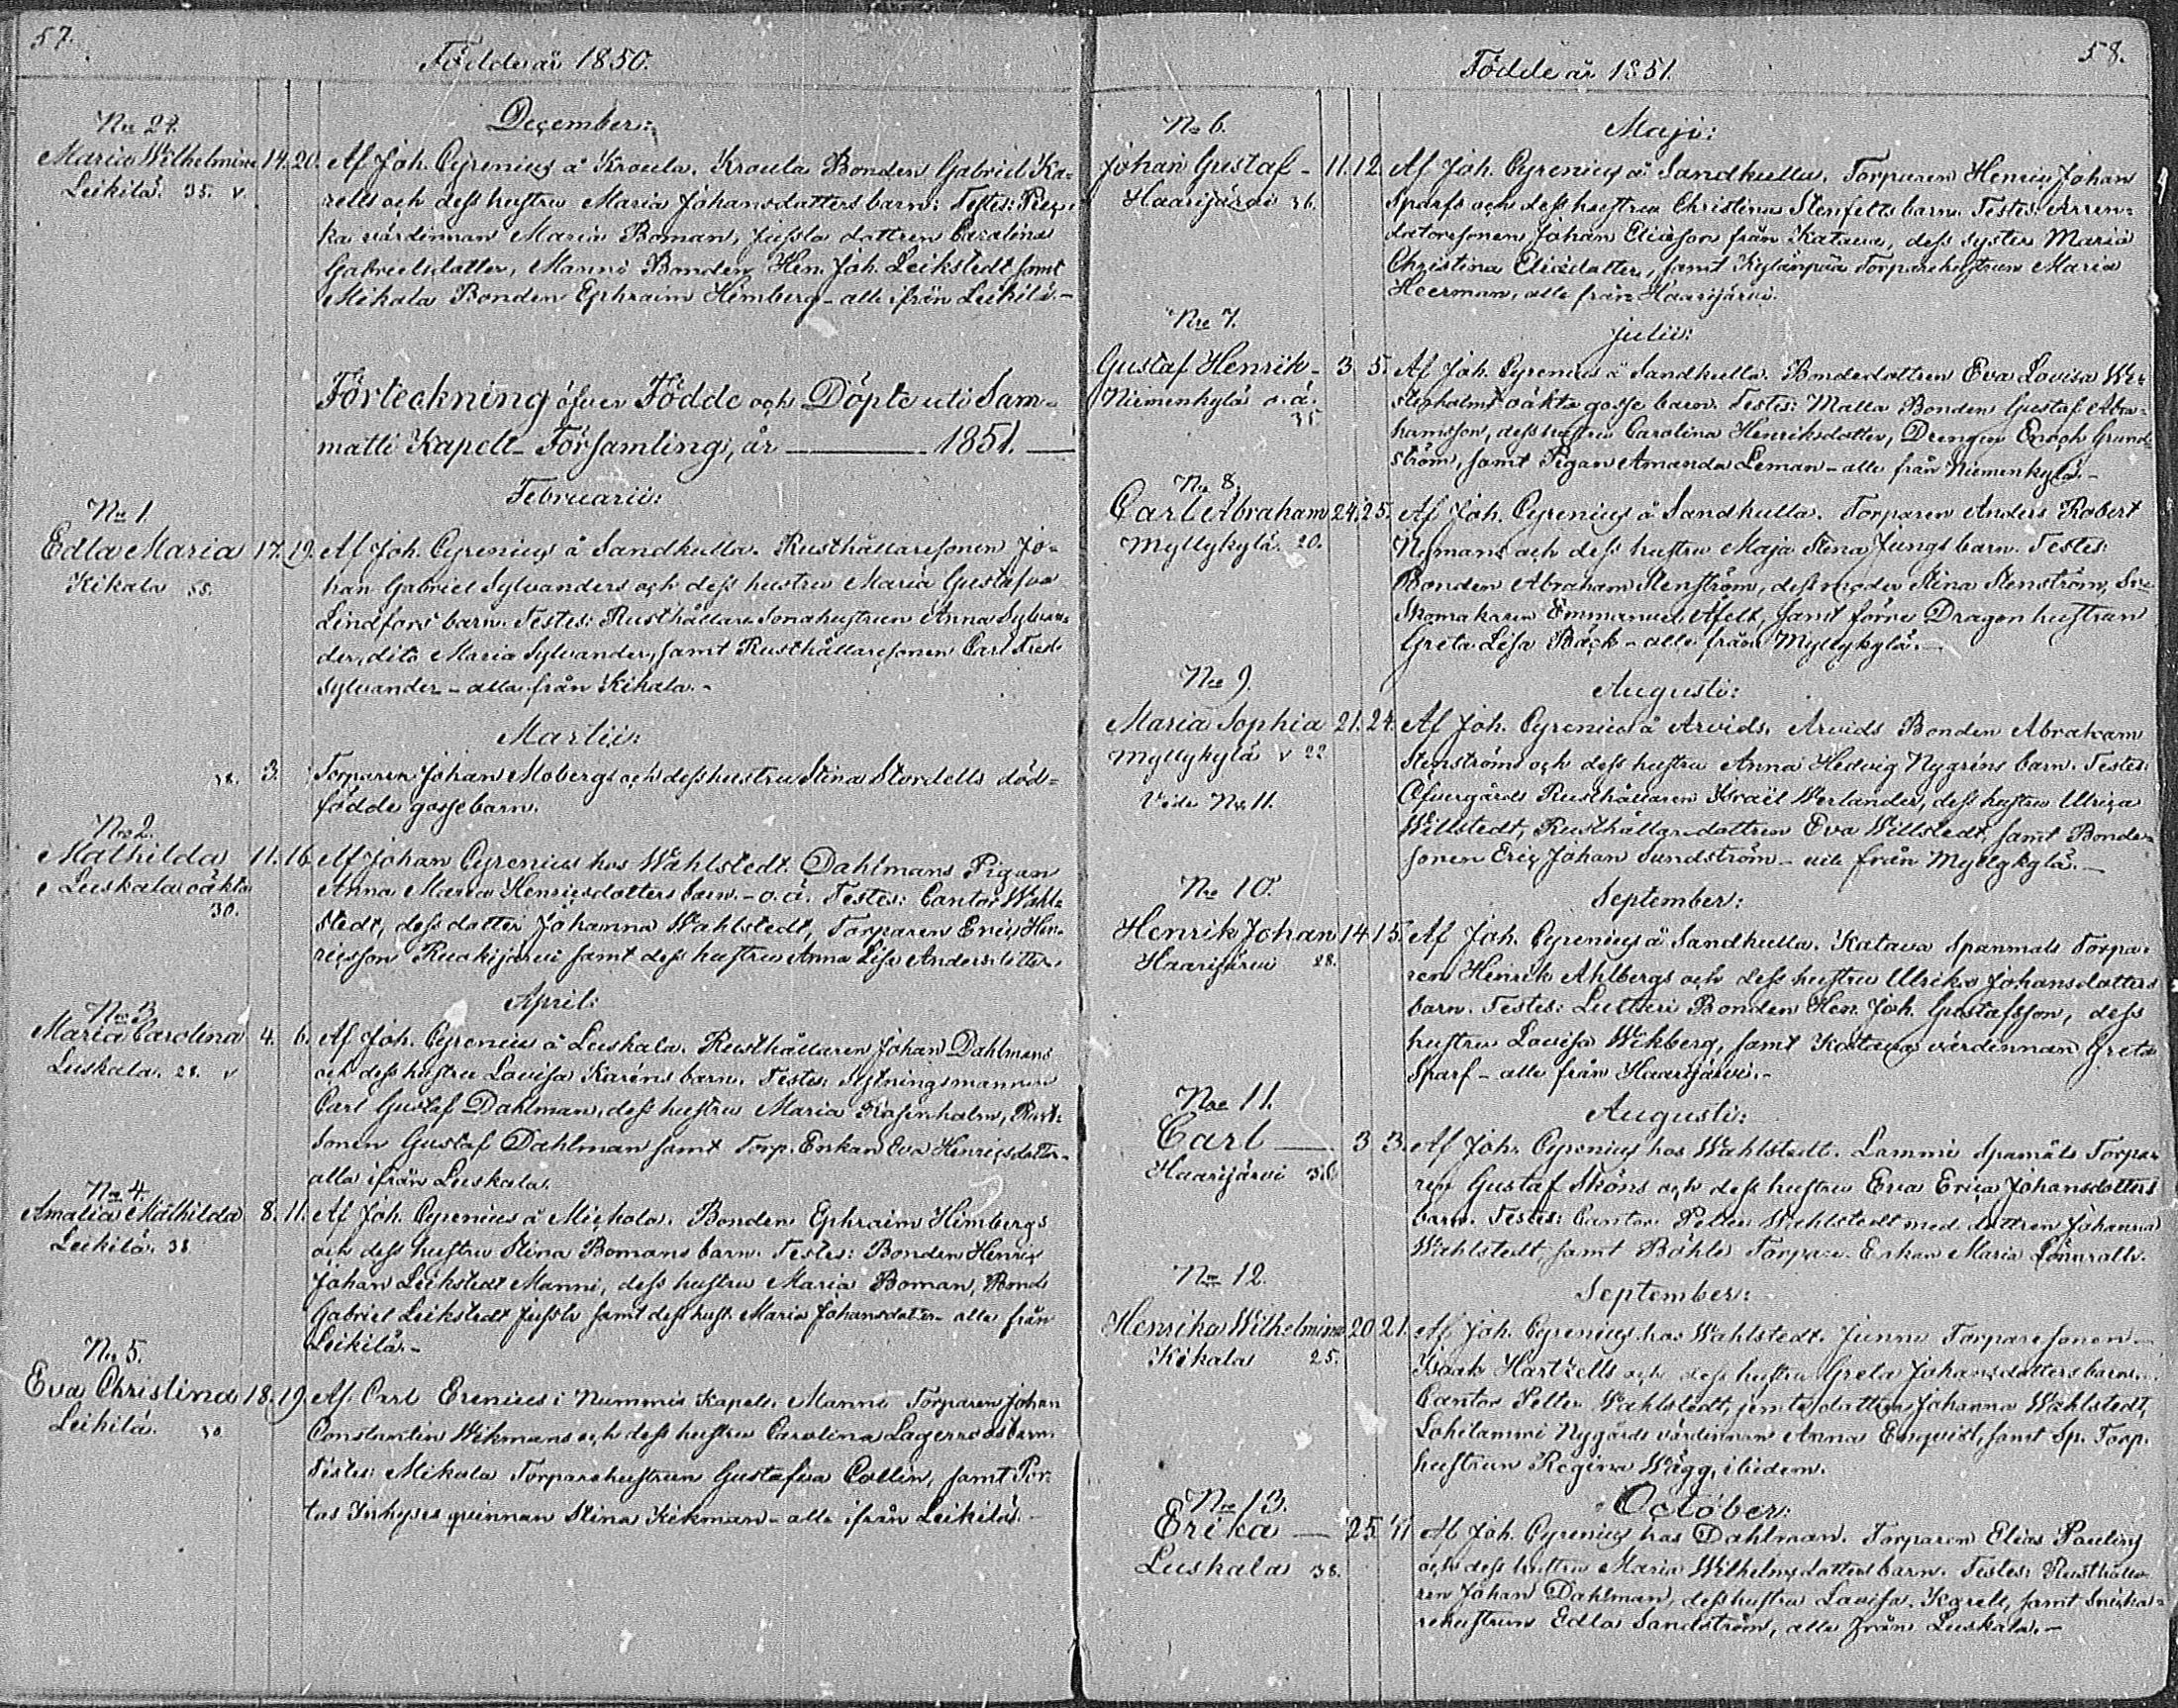 57.
Födde år 1850.
December:
No 24.
Maria Wilhelmina 14. 20. Af Joh. Cyrenius å Kroula. Kroula Bonden Gabriel Ka-
Leikilä. 35. v. rells och dess hustru Maria Johansdotters barn: Testes:
ka värdinnan Maria Boman, Jussla dottren Carolina
Gabrielsdotter, Manni Bonden Hen. Joh. Leikstedt samt
Mikala Bonden Ephraim Himberg - alle ifrån Leikilä.-
Förteckning öfver Födde och Döpte uti Sam-
matti Kapell-Församling, år ——— 1851. —
Februarii:
No 1.
Edla Maria 17. 19. Af Joh. Cyrenius å Sandkulla. Rusthållaresonen Jo-
Kikala 55. han Gabriel Sylvanders och dess hustru Maria Gustafva
Lindfors barn. Testes: Rusthållare Sonahustrun Anna Sylvan-
der, dito Maria Sylvander, samt Rusthållaresonen Carl Fred.
Sylvander - alla från Kikala.-
Martii:
38. 3. Torparen Johan Mobergs och dess hustru Stina Stordells död-
födde gossebarn.
No 2.
Mathilda 11. 16. Af Johan Cyrenius hos Wahlstedt. Dahlmans Pigan
Luskala oäkta Anna Maria Henricsdotters barn.- o.ä. Testes: Cantor Wahl-
30. stedt, dess dotter Johanna Wahlstedt, Torparen Eric Hen-
ricsson Ruokijärvi samt dess hustru Anna Lisa Andersdotter.
April:
No 3.
Maria Carolina 4. 6. Af Joh. Cyrenius å Luskala. Rusthållaren Johan Dahlmans
Luskala. 28. v och dess hustru Lovisa Karéns barn. Testes:
Carl Gustaf Dahlman, dess hustru Maria Kasenholm, Rust-
sonen Gustaf Dahlman samt Torp. Enkan Eva Henricsdotter-
alla ifrån Luskala.
No 4.
Amalia Mathilda 8. 11. Af Joh. Cyrenius å Michola. Bonden Ephraim Himbergs
Leikilä. 38 och dess hustru Stina Bomans barn. Testes: Bonden Henric
Johan Leikstedt Manni, dess hustru Maria Boman, Bond.
Gabriel Leikstedt Jussla samt dess hust. Maria Johansdotter - alla från
Leikilä.-
No 5.
Eva Christina 18. 19. Af Carl Erenius i Nummis Kapell. Manni Torparen Johan
Leikilä. 30 Constantin Wikmans och dess hustru Carolina barn.
Testes: Mikala Torparehustrun Gustafva Collin, samt Por-
tas Inhyses qvinnan Stina Kekoman - alla ifrån Leikilä.-
58.
Födde år 1851.
No 6. Maji:
Johan Gustaf - 11. 12. Af Joh. Cyrenius å Sandkulla. Torparen Henric Johan
Haarijärvi 36. Sparfs och dess hustru Christina Stenfelts barn. Testes: Arren-
datorssonen Johan Eliasson från Katava, dess syster Maria
Christina Eliædotter, samt Kylänpää Torparehustrun Maria
Heerman, alle från Haarijärvi.
No 7. Julii:
Gustaf Henrik - 3 5. Af Joh. Cyrenius å Sandkulla. Bondedottren Eva Lovisa We-
Niemenkylä o.ä. sterholms oäkta gosse barn. Testes: Malla Bonden Gustaf Abra-
35. hamsson, dess hustru Carolina Henriksdotter, Drengen Enoch Grund-
ström, samt Pigan Amanda Leman - alle från Niemenkylä.-
No 8.
Carl Abraham 24. 25. Af Joh. Cyrenius å Sandkulla. Torparen Anders Robert
Myllykylä. 20. Nymans och dess hustru Maja Stina Jungs barn. Testes:
Bonden Abraham Stenström, dess moder Stina Stenström, So-
Skomakaren Emmanuel Afelt, samt förre Dragon hustrun
Greta Lisa Bäck - alle från Myllykylä.-
No 9. Augusti:
Maria Sophia 21. 24. Af Joh. Cyrenius å Arvids. Arvids Bonden Abraham
Myllykylä v 22 Stenströms och dess hustru Anna Hedvig Nygréns barn. Testes:
Vide No 11. Öfvergårds Rusthållaren Israël Werlander, dess hustru Ulrica
Willstedt, Rusthållaredottren Eva Willstedt, samt Bonde-
sonen Eric Johan Sundström - alle från Myllykylä.-
No 10. September:
Henrik Johan 14 15. Af Joh. Cyrenius å Sandkulla. Katava Spanmåls Torpa-
Haarijärvi 28. ren Henrik Ahlbergs och dess hustru Ulrika Johansdotters
barn. Testes: Lutteri Bonden Hen. Joh. Gustafsson, dess
hustru Lovisa Wikberg, samt Katava värdinnan Greta
Sparf - alle från Haarijärvi.-
No 11. Augusti:
Carl — 3 3. Af Joh. Cyrenius hos Wahlstedt. Lammi Spamåls Torpa-
Haarijärvi 36. ren Gustaf Sköns och dess hustru Eva Erica Johansdotters
barn. Testes: Cantor Petter Wahlstedt med dottren Johanna
Wahlstedt, samt Böhle Torpare Enkan Maria Lönnroth.
No 12. September:
Henrika Wilhelmina 20. 21. Af Joh. Cyrenius hos Wahlstedt. Junnu Torparesonen
Kikala 25. Isaak Hartzells och dess hustru Greta Johansdotters barn.
Cantor Petter Wahlstedt, jemte dottren Johanna Wahlstedt,
Lohilammi Nygårds värdinnan Anna Enqvist, samt Sp. Torp.
hustrun Regina Wägg, ibidem.
No 13. October:
Erika — 25 Af Joh. Cyrenius hos Dahlman. Torparen Elias Paulins
Luskala 38. och dess hustru Maria Wilhelmsdotters barn. Testes: Rusthålla-
ren Johan Dahlman, dess hustru Lovisa Karell, samt Snicka-
rehustrun Edla Sandström, alle från Luskala.-